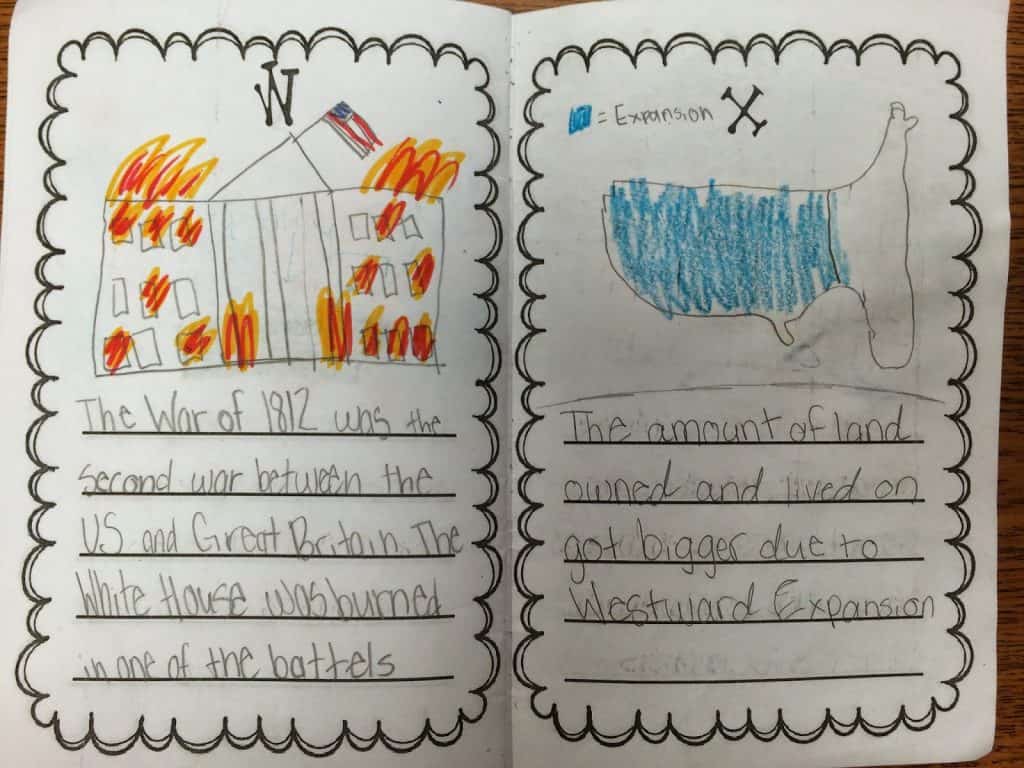 W
The War of 1812 was the
second war between the
US and Great Britain. The
White House was burned
in one of the battels
= Expansion X
The amount of land
owned and lived on
got bigger due to
Westward Expansion